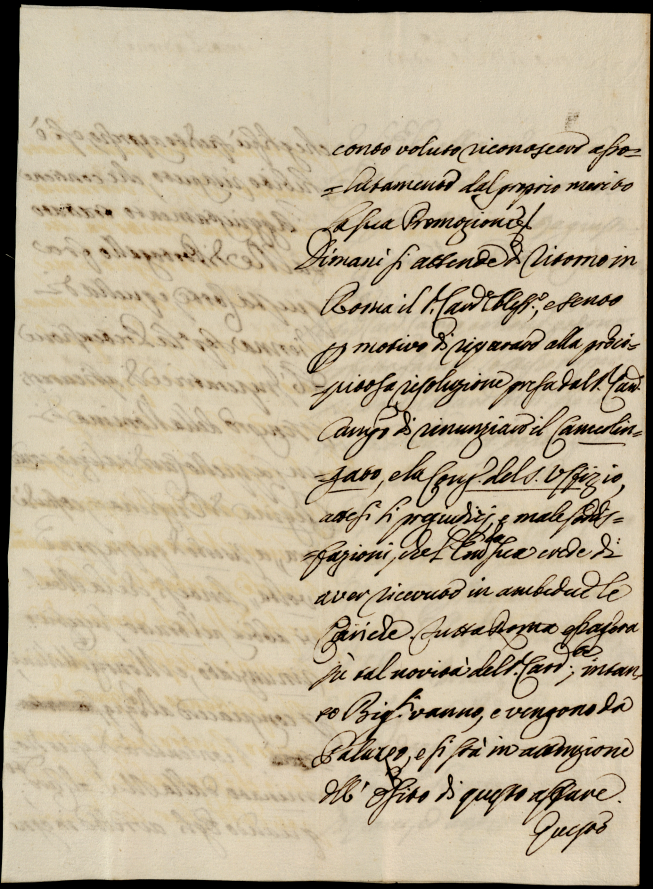 cendo voluto riconoscere asso=
=lutamente dal proprio merito
la sua Promozione.
Dimani si attende di ritorno in
Roma il S. Card.e e sento
motivo di riparare alla preci=
=pitosa risoluzione presa dal S. Card.
di rinunziare il Camerlin=
=gato, e la Cong.e del S. Uffizio,
attesi li pregiudizj, e male sodis=
=fazioni, che l'Em.za sua crede di
aver ricevuto in ambedue le
Cariche. Tutta Roma esagera
sù tal novità del S. Card.e; intan=
to Bigl.i vanno, e vengono da
Palazzo, e si stà in attenzione
dell' esito di questo affare.
Questo